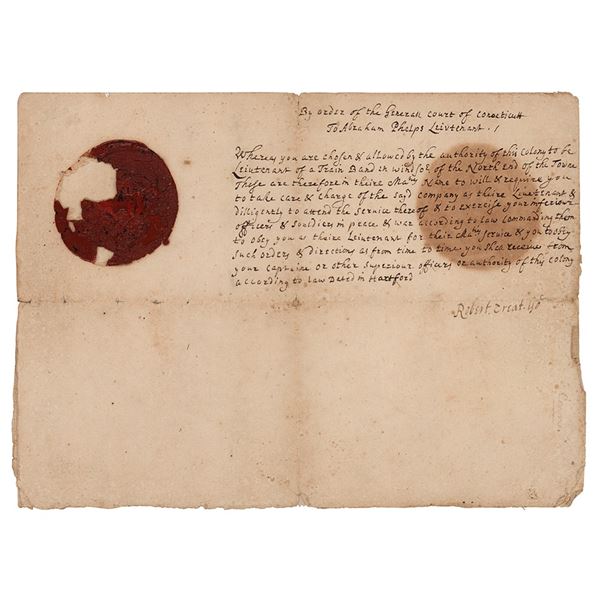 By order of the Generall Court of Conecticutt
To Abraham Phelps Leiutenant. /
Whereas you are Chosen & allowed by the authority of this Colony to be
Lieutenant of a Train Band in windsor of the North End of the Towne
These are therefore in theire Maties Name to Will & require you
to take care & Charge of the said Company as theire Lieutenant &
dilligently to attend the Service thereof & to exercise your inferiour
officers & Souldiers in peace & war according to law Comanding them
to obey you as theire Lieutenant for their Maties Service & you to obey
Such orders & directions as from time to time you shall receive from
your Captaine or other Superiour officers or authority of this Colony
according to law Dated in Hartford
Robert Treat Govr